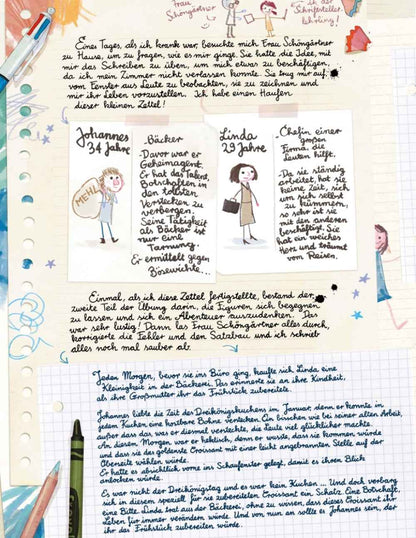 Frau
Schöngärtner
in der
Schriftsteller-
lehrling!
Eines Tages, als ich krank war, besuchte mich Frau Schöngärtner
zu Hause, um zu fragen, wie es mir ginge. Sie hatte die Idee, mit
mir das Schreiben zu üben, um mich etwas zu beschäftigen,
da ich mein Zimmer nicht verlassen konnte. Sie trug mir auf,
vom Fenster aus Leute zu beobachten, sie zu zeichnen und
mir ihr Leben vorzustellen. Ich habe einen Haufen
dieser kleinen Zettel!
Johannes
34 Jahre
MEHL
- Bäcker
- Davor war er
Geheimagent.
Er hat das Talent,
Botschaften in
den tollsten
Verstecken zu
verbergen.
Seine Tätigkeit
als Bäcker ist
nur eine
Tarnung.
Er ermittelt gegen
Bösewichte...
Linda
29 Jahre
- Chefin einer
großen
Firma, die
Leuten hilft.
- Da sie ständig
arbeitet, hat sie
keine Zeit, sich
um sich selbst
zu kümmern,
so sehr ist sie
mit den anderen
beschäftigt. Sie
hat ein weiches
Herz und träumt
vom Reisen.
Einmal, als ich diese Zettel fertigstellte, bestand der
zweite Teil der Übung darin, die Figuren sich begegnen
zu lassen und sich ein Abenteuer auszudenken. Das
war sehr lustig! Dann las Frau Schöngärtner alles durch,
korrigierte die Fehler und den Satzbau und ich schrieb
alles noch mal sauber ab.
Jeden Morgen, bevor sie ins Büro ging, kaufte sich Linda eine
Kleinigkeit in der Bäckerei. Das erinnerte sie an ihre Kindheit,
als ihre Großmutter ihr das Frühstück zubereitete.
Johannes liebte die Zeit des Dreikönigskuchens im Januar, denn er konnte in
jedem Kuchen eine kostbare Bohne verstecken. Ein bisschen wie bei seiner alten Arbeit,
außer dass das, was er diesmal versteckte, die Leute viel glücklicher machte.
An diesem Morgen war er hektisch, denn er wusste, dass sie kommen würde
und dass sie das goldenste Croissant mit einer leicht angebrannten Stelle auf der
Oberseite wählen würde.
Er hatte es absichtlich vorne ins Schaufenster gelegt, damit es ihren Blick
anlocken würde.
Es war nicht der Dreikönigstag und es war kein Kuchen ... Und doch verbarg
sich in diesem speziell für sie zubereiteten Croissant ein Schatz. Eine Botschaft,
eine Bitte. Linda trat aus der Bäckerei, ohne zu wissen, dass dieses Croissant ihr
Leben für immer verändern würde. Und von nun an sollte es Johannes sein, der
ihr das Frühstück zubereiten würde.